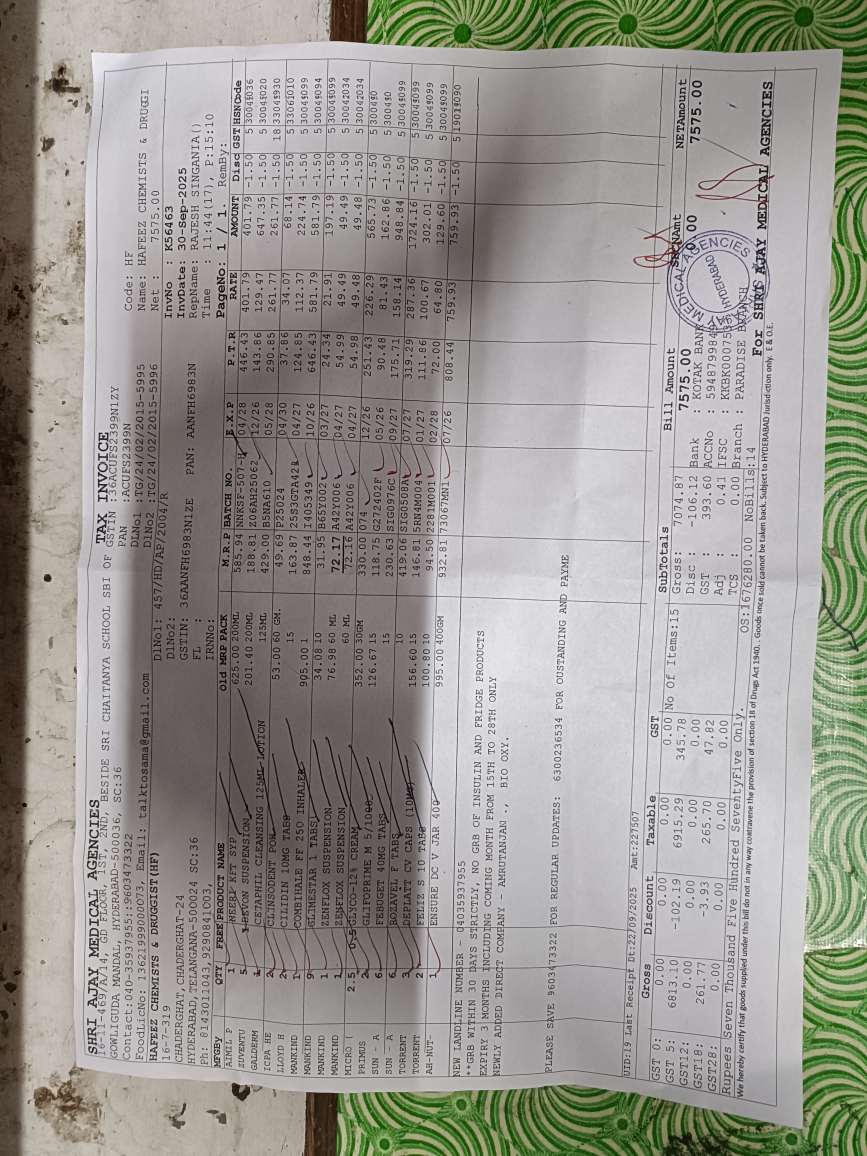 SHRI AJAY MEDICAL AGENCIES
16-11-469/A/14, GD FLOOR, 1ST, 2ND, BESIDE SRI CHAITANYA SCHOOL SBI OF
GOWLIGUDA MANDAL, HYDERABAD-500036, SC:36
Contact:040-35937955::9603473322
FoodLicNo: 13621999000073, Email: talktosama@gmail.com
TAX INVOICE
GSTIN :36ACUFS2399N1ZY
PAN :ACUFS2399N
DLNo1 :TG/24/02/2015-5995
DlNo2 :TG/24/02/2015-5996
Code: HF
Name: HAFEEZ CHEMISTS & DRUGGI
Net : 7575.00
HAFEEZ CHEMISTS & DRUGGIST(HF)
16-7-319
CHADERGHAT, CHADERGHAT-24
HYDERABAD, TELANGANA-500024 SC:36
Ph: 8143011043,9290841003,
DlNo1: 457/HD/AP/2004/R
DlNo2:
GSTIN: 36AANFH6983N1ZE PAN: AANFH6983N
FL :
IRNNo:
InvNo : K56463
InvDate: 30-Sep-2025
RepName: RAJESH SINGANIA()
Time : 11:44(17), P:15:10
PageNo: 1 / 1. RemBy:
MFGBy QTY FREE PRODUCT NAME Old MRP PACK M.R.P BATCH NO. E.X.P P.T.R RATE AMOUNT Disc GST HSNCode
AIMIL P 1 NEERI KFT SYP 625.00 200ML 585.94 NNKSF-507-H 04/28 446.43 401.79 401.79 -1.50 5 30049036
ZUVENTU 5 BEVON SUSPENSION 201.40 200ML 188.81 Z06AH25062 12/26 143.86 129.47 647.35 -1.50 5 30045020
GALDERM 1 CETAPHIL CLEANSING 125ML LOTION 125ML 429.00 B5NA610 05/28 290.85 261.77 261.77 -1.50 18 33049930
ICPA HE 2 CLINSODENT POW 53.00 60 GM. 49.69 P25024 04/30 37.86 34.07 68.14 -1.50 5 33061010
LLOYD H 2 CILIDIN 10MG TABS 15 163.87 25S3GTA428 04/27 124.85 112.37 224.74 -1.50 5 30049099
MANKIND 1 COMBIHALE FF 250 INHALER 905.00 1 848.44 I405349 10/26 646.43 581.79 581.79 -1.50 5 30049094
MANKIND 9 GLIMESTAR 1 TABS 34.08 10 31.95 B65Y002 03/27 24.34 21.91 197.19 -1.50 5 30049099
MANKIND 1 ZENFLOX SUSPENSION 76.98 60 ML 72.17 A42Y006 04/27 54.99 49.49 49.49 -1.50 5 30042034
MANKIND 1 ZENFLOX SUSPENSION 60 ML 72.16 A42Y006 04/27 54.98 49.48 49.48 -1.50 5 30042034
MICRO ( 2.5 0.5 GLYCO-12% CREAM 352.00 30GM 330.00 074 12/26 251.43 226.29 565.73 -1.50 5 300490
PRIMUS 2 GLIPOPRIME M 5/1000 126.67 15 118.75 G272402F 05/26 90.48 81.43 162.86 -1.50 5 300430
SUN - A 6 FEBUGET 40MG TABS 15 230.63 SIG0976C 09/27 175.71 158.14 948.84 -1.50 5 30049099
SUN - A 6 ROZAVEL F TABS 10 419.06 SIG0508A 07/27 319.29 287.36 1724.16 -1.50 5 30049099
TORRENT 3 DEPLATT CV CAPS (10MG) 156.60 15 146.81 5RN4M004 01/27 111.86 100.67 302.01 -1.50 5 30049099
TORRENT 2 FELIZ S 10 TABS 100.80 10 94.50 2281M001 02/28 72.00 64.80 129.60 -1.50 5 30049099
AH-NUT- 1 ENSURE DC V JAR 400 995.00 400GM 932.81 73067NN1 07/26 808.44 759.93 759.93 -1.50 5 19011090
NEW LANDLINE NUMBER - 04035937955
**GRB WITHIN 30 DAYS STRICTLY, NO GRB OF INSULIN AND FRIDGE PRODUCTS
EXPIRY 3 MONTHS INCLUDING COMING MONTH FROM 15TH TO 28TH ONLY
NEWLY ADDED DIRECT COMPANY - AMRUTANJAN ., BIO OXY.
PLEASE SAVE 9603473322 FOR REGULAR UPDATES: 6300236534 FOR OUSTANDING AND PAYME
UID:19 Last Receipt Dt:22/09/2025 Amt:227507
Gross Discount Taxable GST
GST 0: 0.00 0.00 0.00 0.00
GST 5: 6813.10 -102.19 6915.29 345.78
GST12: 0.00 0.00 0.00 0.00
GST18: 261.77 -3.93 265.70 47.82
GST28: 0.00 0.00 0.00 0.00
No Of Items:15
SubTotals
Gross: 7074.87
Disc : -106.12
GST : 393.60
Adj : 0.41
TCS : 0.00
Bill Amount
7575.00
SRCNAmt
0.00
NETAmount
7575.00
Bank : KOTAK BANK
ACCNo : 594879984
IFSC : KKBK000753
Branch : PARADISE BRANCH
Rupees Seven Thousand Five Hundred SeventyFive Only. OS:1676280.00 NoBills:14
We hereby certify that goods supplied under this bill do not in any way contravene the provision of section 18 of Drugs Act 1940. . Goods once sold cannot be taken back. Subject to HYDERABAD Jurisdiction only. E & O.E.
For SHRI AJAY MEDICAL AGENCIES
MEDICAL AGENCIES
HYDERABAD